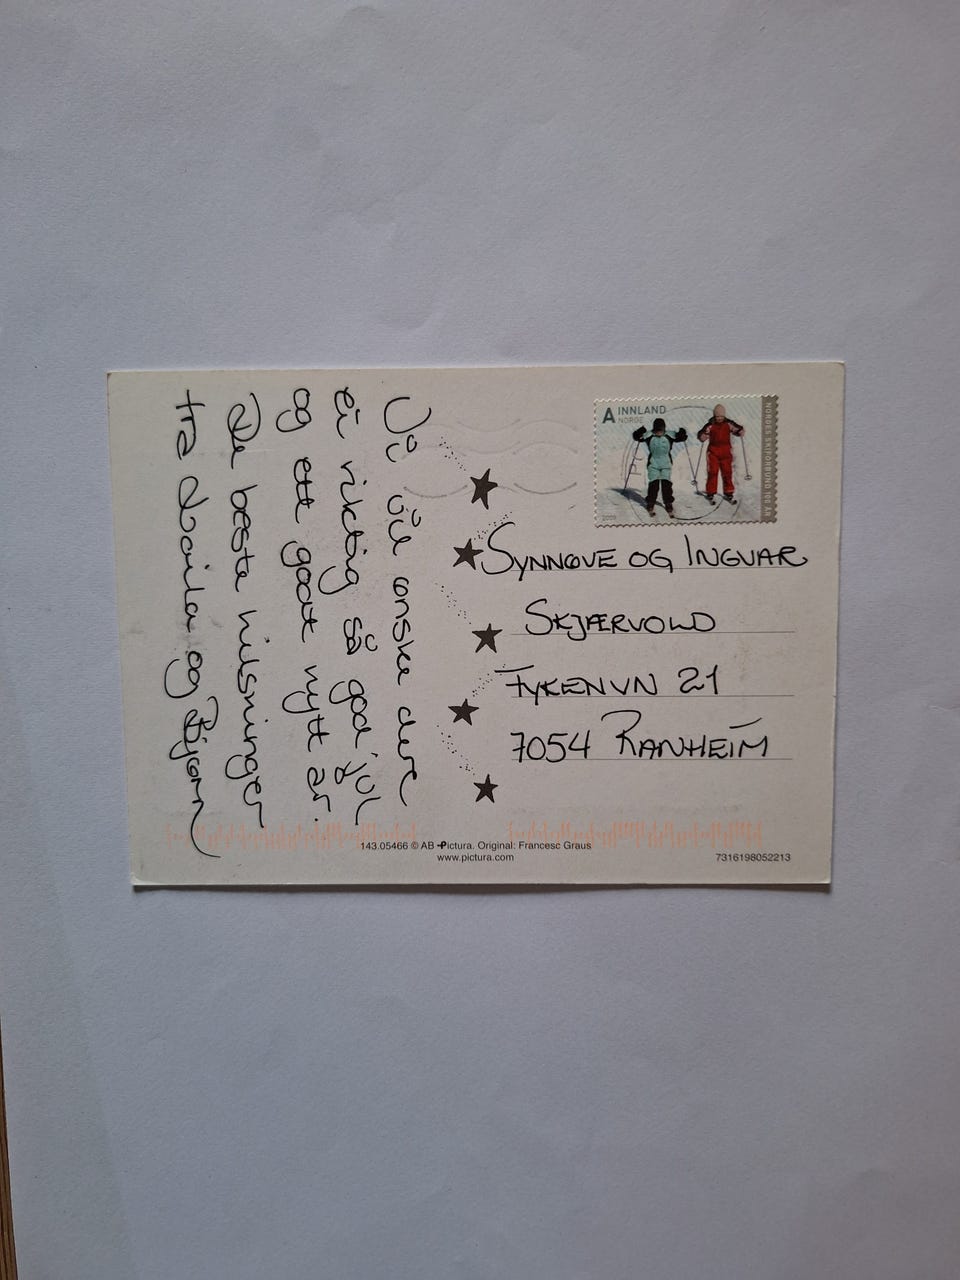 Vi vil ønske dere
ei riktig så god jul
og ett godt nytt år.
De beste hilsninger
fra Laila og Bjørn
A INNLAND
NORGE
NORGES SKIFORBUND 100 ÅR
2008
SYNNØVE OG INGVAR
SKJÆRVOLD
FYKENVN 21
7054 RANHEIM
143.05466 © AB Pictura. Original: Francesc Graus
www.pictura.com
7316198052213